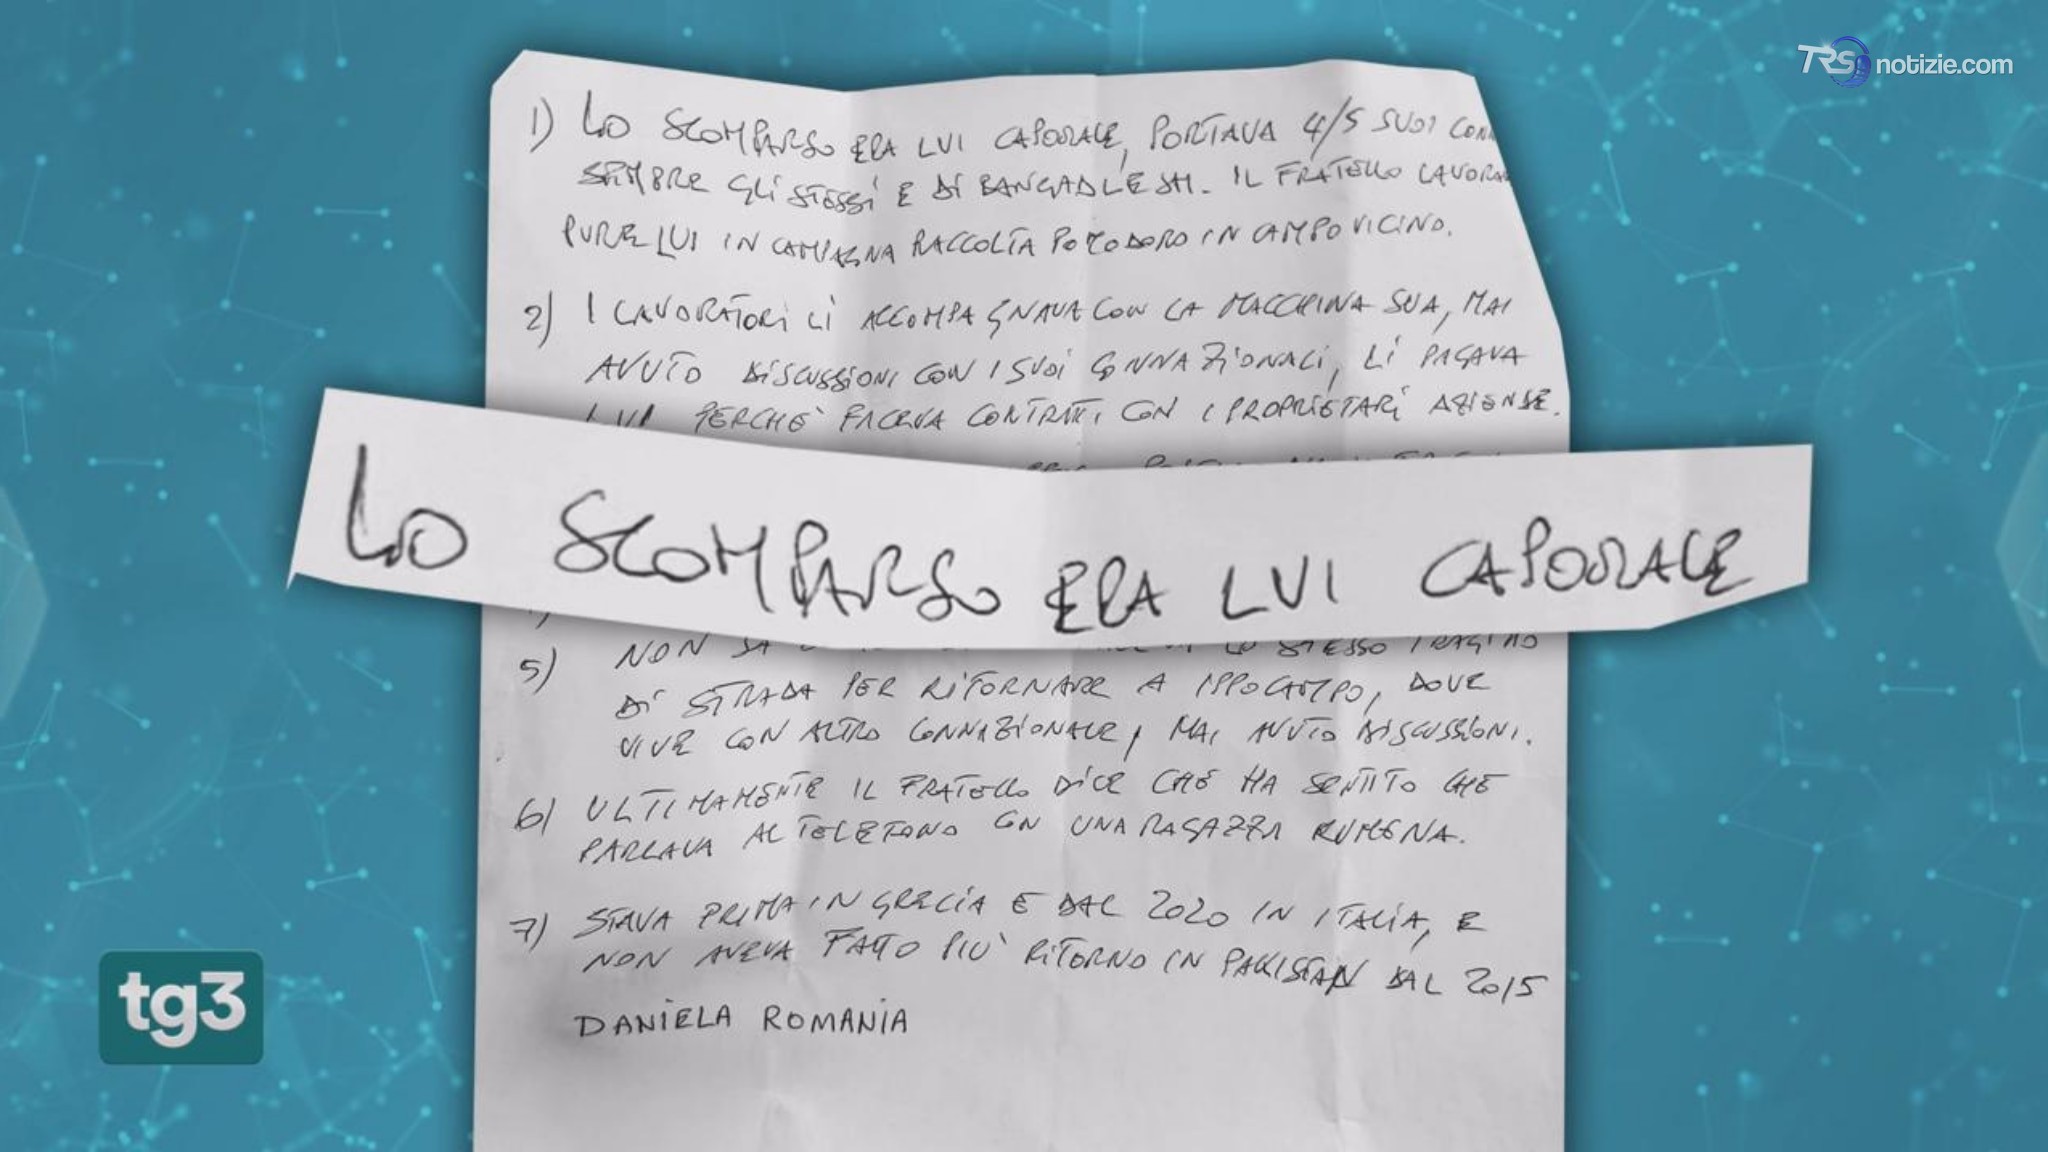 TRS notizie.com
1) LO SCOMPARSO ERA LUI CAPORALE, PORTAVA 4/5 SUOI CONN
SEMPRE GLI STESSI E DI BANGADLESH. IL FRATELLO LAVORAV
PURE LUI IN CAMPAGNA RACCOLTA POMODORO IN CAMPO VICINO.
2) I LAVORATORI LI ACCOMPAGNAVA CON LA MACCHINA SUA, MAI
AVUTO DISCUSSIONI CON I SUOI CONNAZIONALI, LI PAGAVA
LUI PERCHE' FACEVA CONTRATTI CON I PROPRIETARI AZIENDE.
LO SCOMPARSO ERA LUI CAPORALE
5) NON SA LO STESSO TRAGITTO
DI STRADA PER RITORNARE A IPPOCAMPO, DOVE
VIVE CON ALTRO CONNAZIONALE, MAI AVUTO DISCUSSIONI.
6) ULTIMAMENTE IL FRATELLO DICE CHE HA SENTITO CHE
PARLAVA AL TELEFONO CON UNA RAGAZZA RUMENA.
7) STAVA PRIMA IN GRECIA E DAL 2020 IN ITALIA, E
NON AVEVA FATTO PIU' RITORNO IN PAKISTAN DAL 2015
DANIELA ROMANIA
tg3